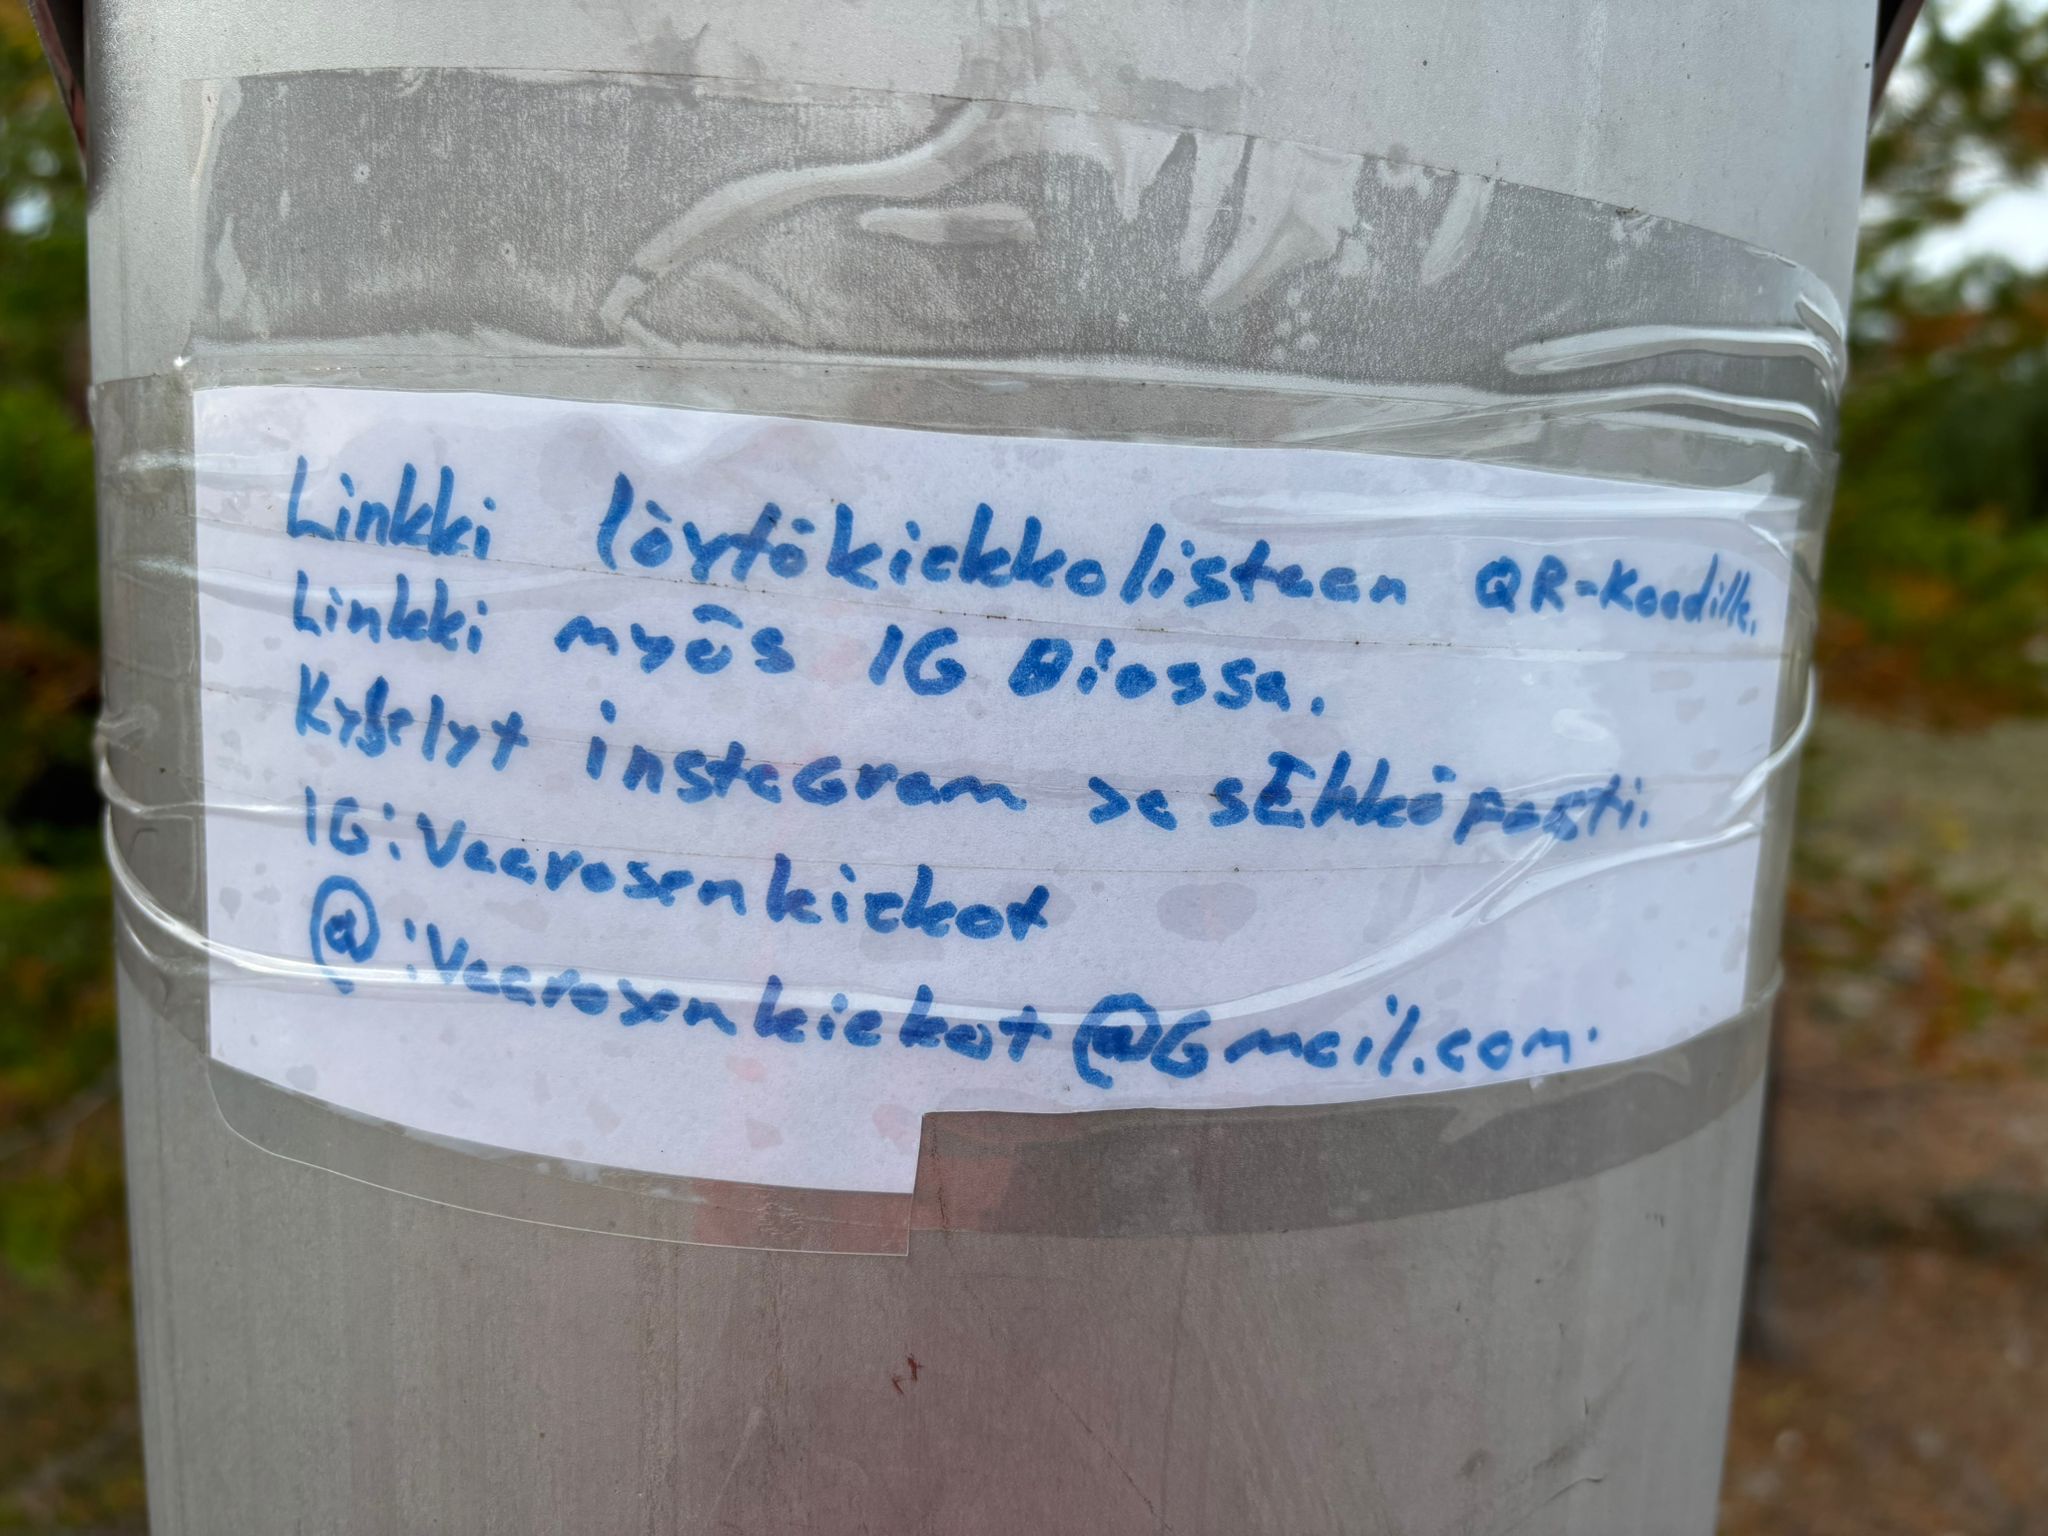 Linkki löytökiekkolistaan QR-Koodille.
Linkki myös IG Biossa.
Kyselyt instagram ja sähköposti.
IG: Vaarosenkiekot
@: Vaarosenkiekot@Gmail.com.